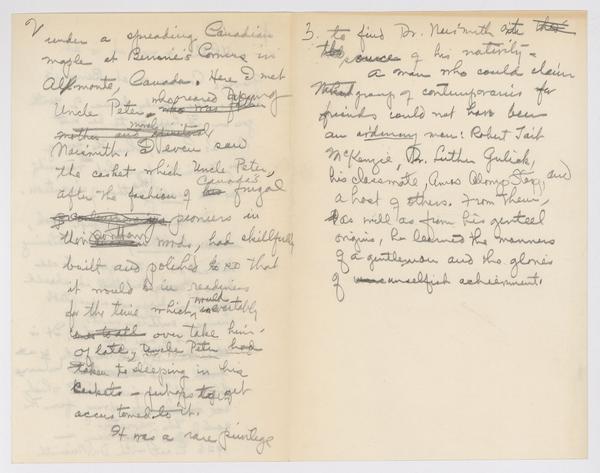 under a spreading Canadian
maple at Bennie's Corners in
Almonte, Canada. Here I met
Uncle Peter, who reared
who was father
mother and
Naismith. I even saw
the casket which Uncle Peter,
after the fashion of Canada's frugal
pioneers in
their woods, had skillfully
built and polished so that
it would be in readiness
for the time which would inevitably
over take him.
Of late, Uncle Peter had
taken to sleeping in his
caskets - perhaps to get
accustomed to it.
It was a rare privilege
3. to find Dr. Naismith into
source of his nativity -
A man who could claim
group of contemporaries for
friends could not have been
an ordinary man: Robert Tait
McKenzie, Dr. Luther Gulick,
his classmate, Amos Alonzo Stagg, and
a host of others. From them,
as well as from his genteel
origins, he learned the manners
of a gentleman and the glories
of unselfish achievement.